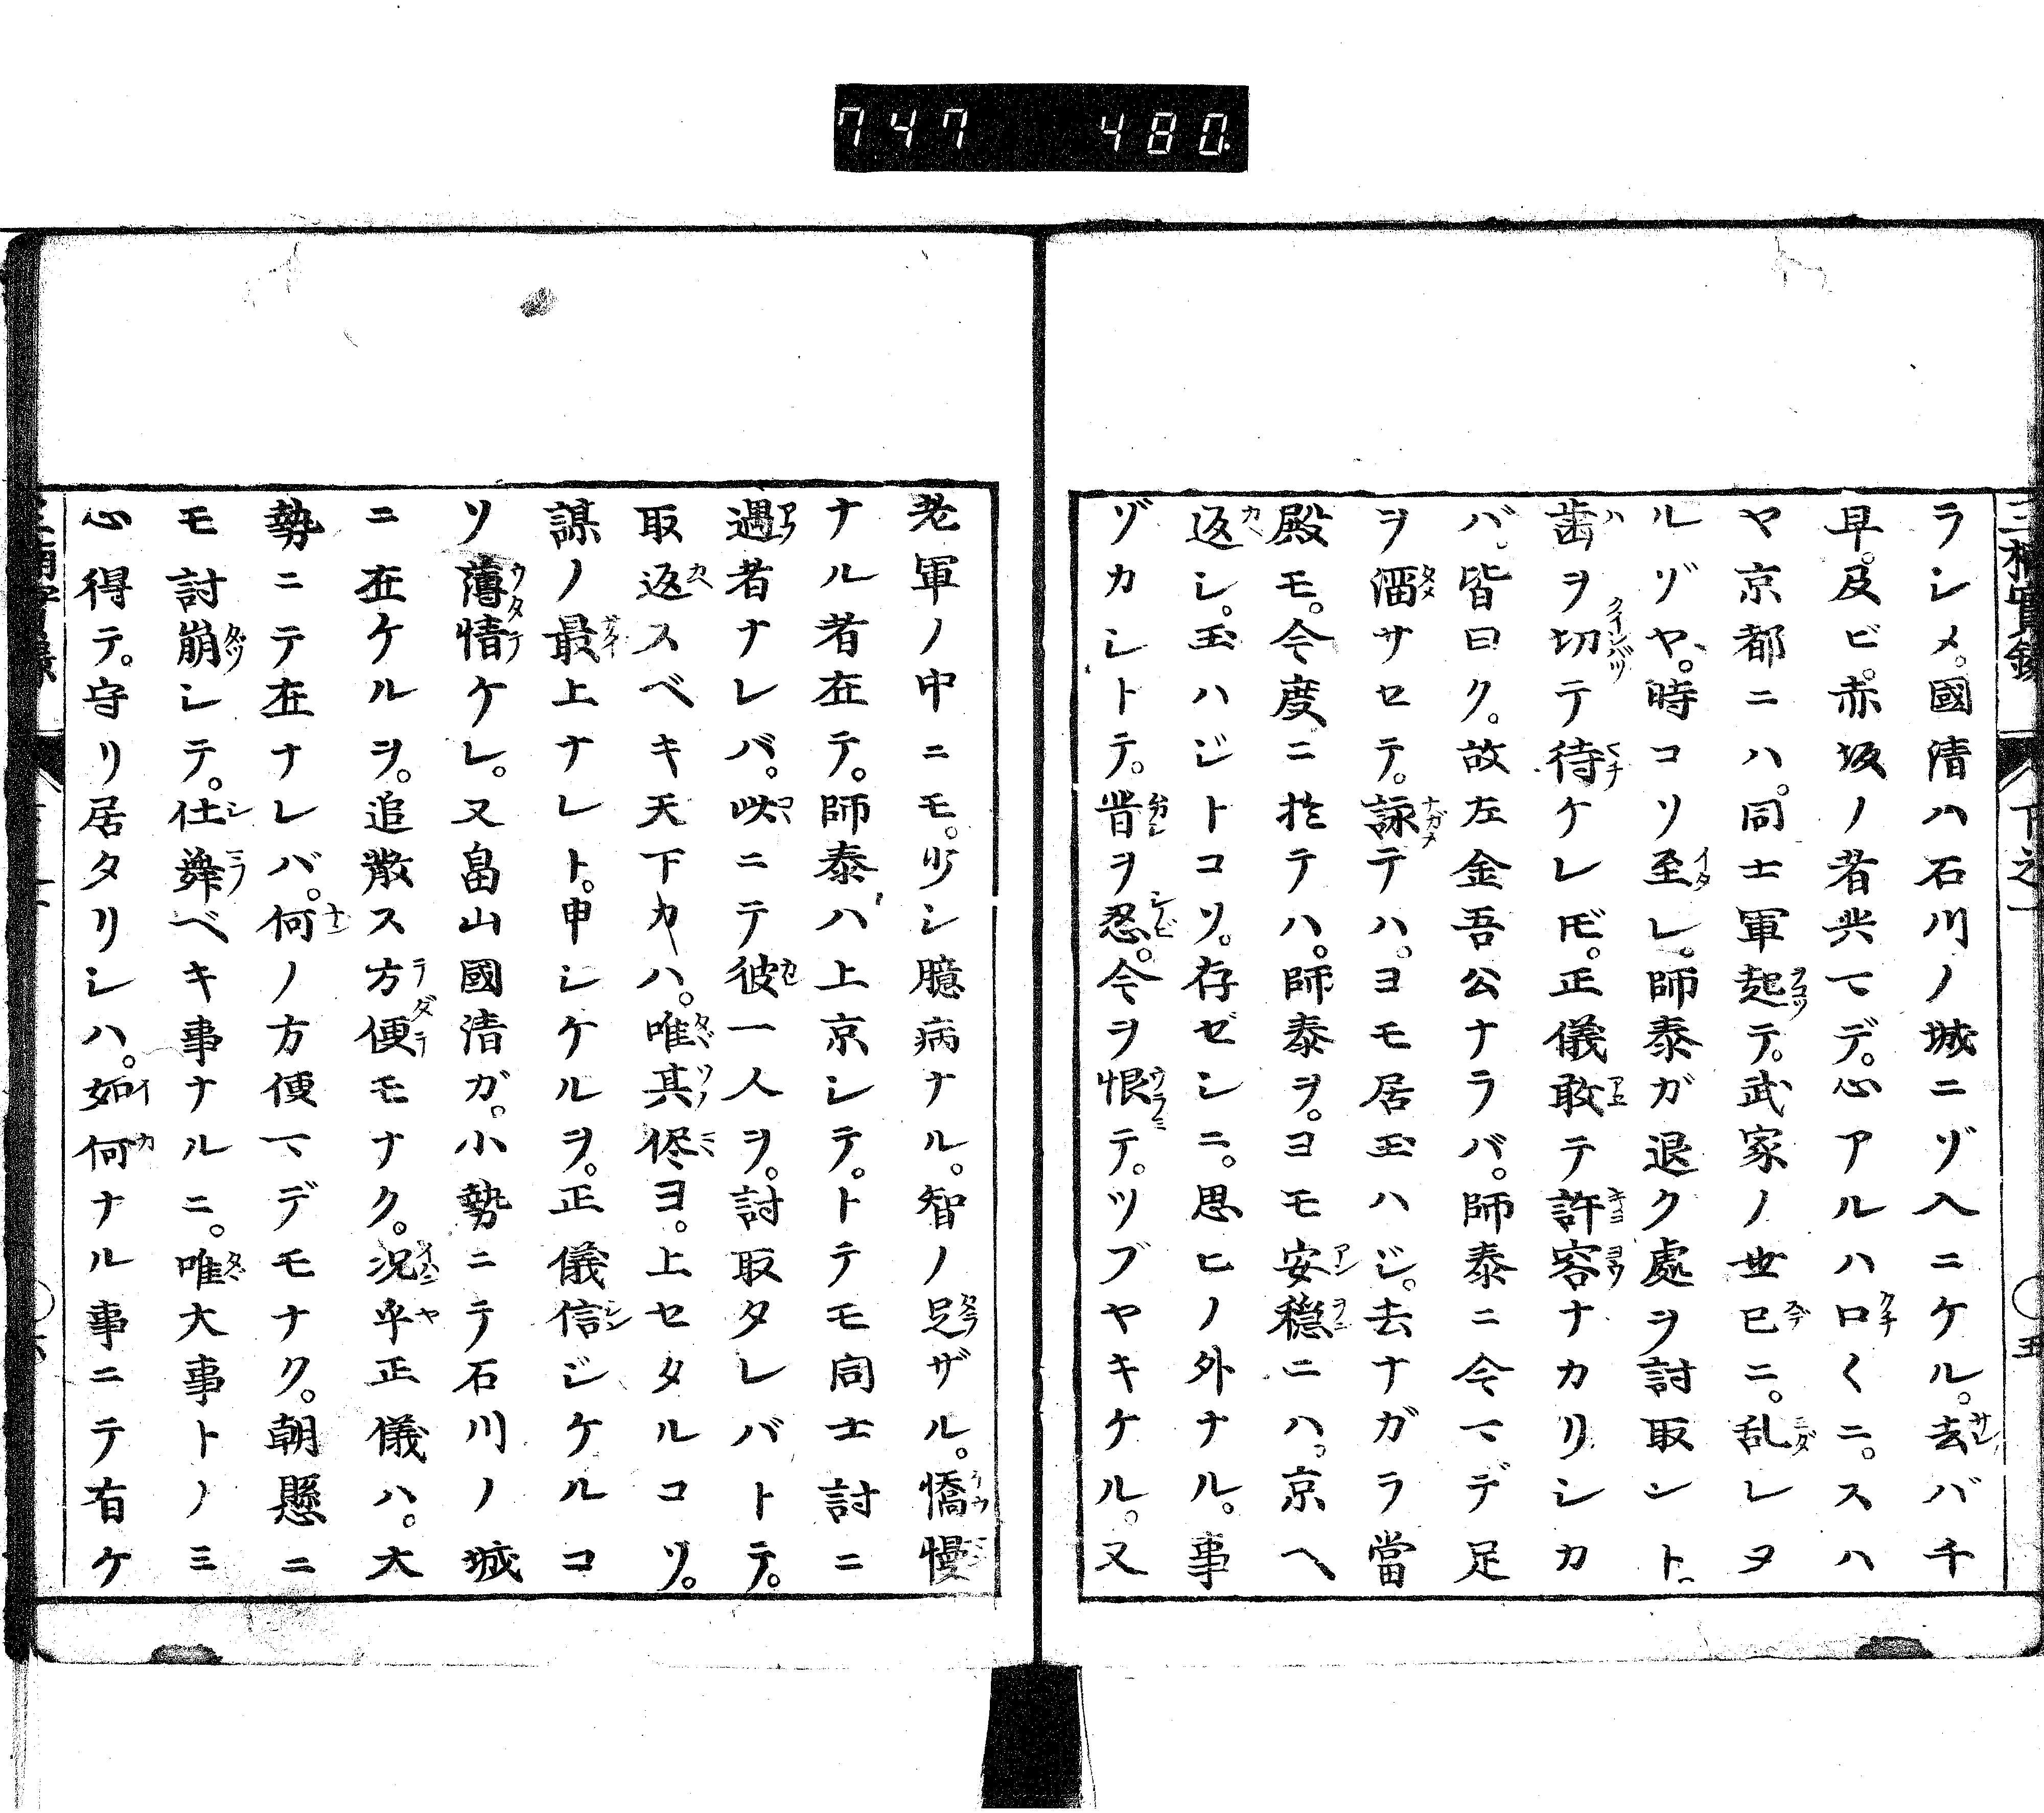 747 480
ラシメ。國清ハ石川ノ城ニゾ入ニケル。去バ千
早。及ビ。赤坂ノ者共マデ。心アルハ口〱ニ。スハ
ヤ京都ニハ。同士軍起テ。武家ノ世已ニ。乱レタ
ルゾヤ。時コソ至レ。師泰ガ退ク處ヲ討取ント
歯ヲ切テ待ケレ𪜈。正儀敢テ許容ナカリシカ
バ。皆曰ク。故左金吾公ナラバ。師泰ニ今マデ足
ヲ溜サセテ。詠テハ。ヨモ居玉ハジ。去ナガラ當
殿モ。今度ニ於テハ。師泰ヲ。ヨモ安穏ニハ。京ヘ
返シ。玉ハジトコソ。存ゼシニ。思ヒノ外ナル。事
ゾカシトテ。昔ヲ忍。今ヲ恨テ。ツブヤキケル。又
老軍ノ中ニモ。少シ臆病ナル。智ノ足ザル。憍慢
ナル者在テ。師泰ハ上京シテ。トテモ同士討ニ
遇者ナレバ。此ニテ彼一人ヲ。討取タレバトテ。
取返スベキ天下カハ。唯其侭ヨ。上セタルコソ。
謀ノ最上ナレト。申シケルヲ。正儀信ジケルコ
ソ薄情ケレ。又畠山國清ガ。小勢ニテ石川ノ城
ニ在ケルヲ。追散ス方便モナク。況乎正儀ハ。大
勢ニテ在ナレバ。何ノ方便マデモナク。朝懸ニ
モ討崩シテ。仕舞ベキ事ナルニ。唯大事トノミ
心得テ。守リ居タリシハ。如何ナル事ニテ有ケ